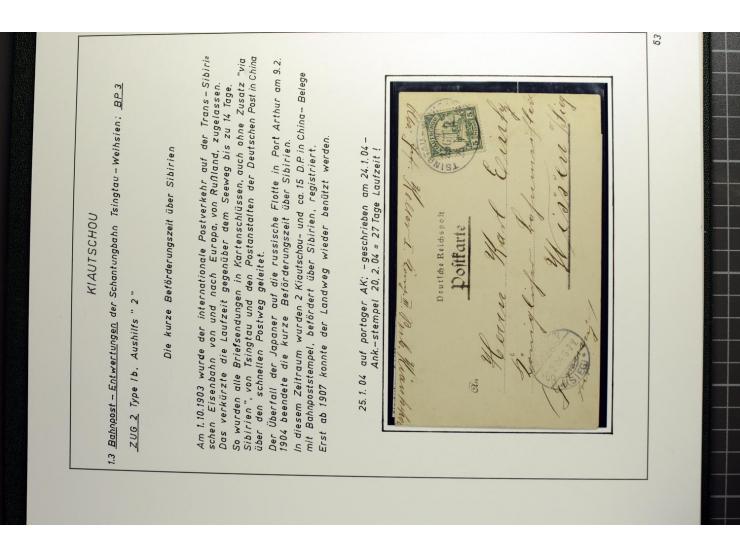 KIAUTSCHOU
1.3 Bahnpost – Entwertungen der Schantungbahn Tsingtau – Weihsien; BP 3
ZUG 2 Type Ib. Aushilfs "2"
Die kurze Beförderungszeit über Sibirien
Am 1.10.1903 wurde der internationale Postverkehr auf der Trans – Sibiri
schen Eisenbahn von und nach Europa, von Rußland, zugelassen.
Das verkürzte die Laufzeit gegenüber dem Seeweg bis zu 14 Tage.
So wurden alle Briefsendungen in Kartenschlüssen, auch ohne Zusatz "via
Sibirien", von Tsingtau und den Postanstalten der Deutschen Post in China
über den schnellen Postweg geleitet.
Der Überfall der Japaner auf die russische Flotte in Port Arthur am 9.2.
1904 beendete die kurze Beförderungszeit über Sibirien.
In diesem Zeitraum wurden 2 Kiautschau- und ca. 15 D.P. in China – Belege
mit Bahnpoststempel, befördert über Sibirien, registriert.
Erst ab 1907 konnte der Landweg wieder benützt werden.
25.1. 04 auf portoger AK; – geschrieben am 24.1.04 –
Ank.–stempel 20.2.04 = 27 Tage Laufzeit !
Deutsche Reichspost
Postkarte
An
Herrn Karl
Königlichen
Wissen Sieg
(SIEG)
TSINGTAU
KIAUTSCHOU
5
63